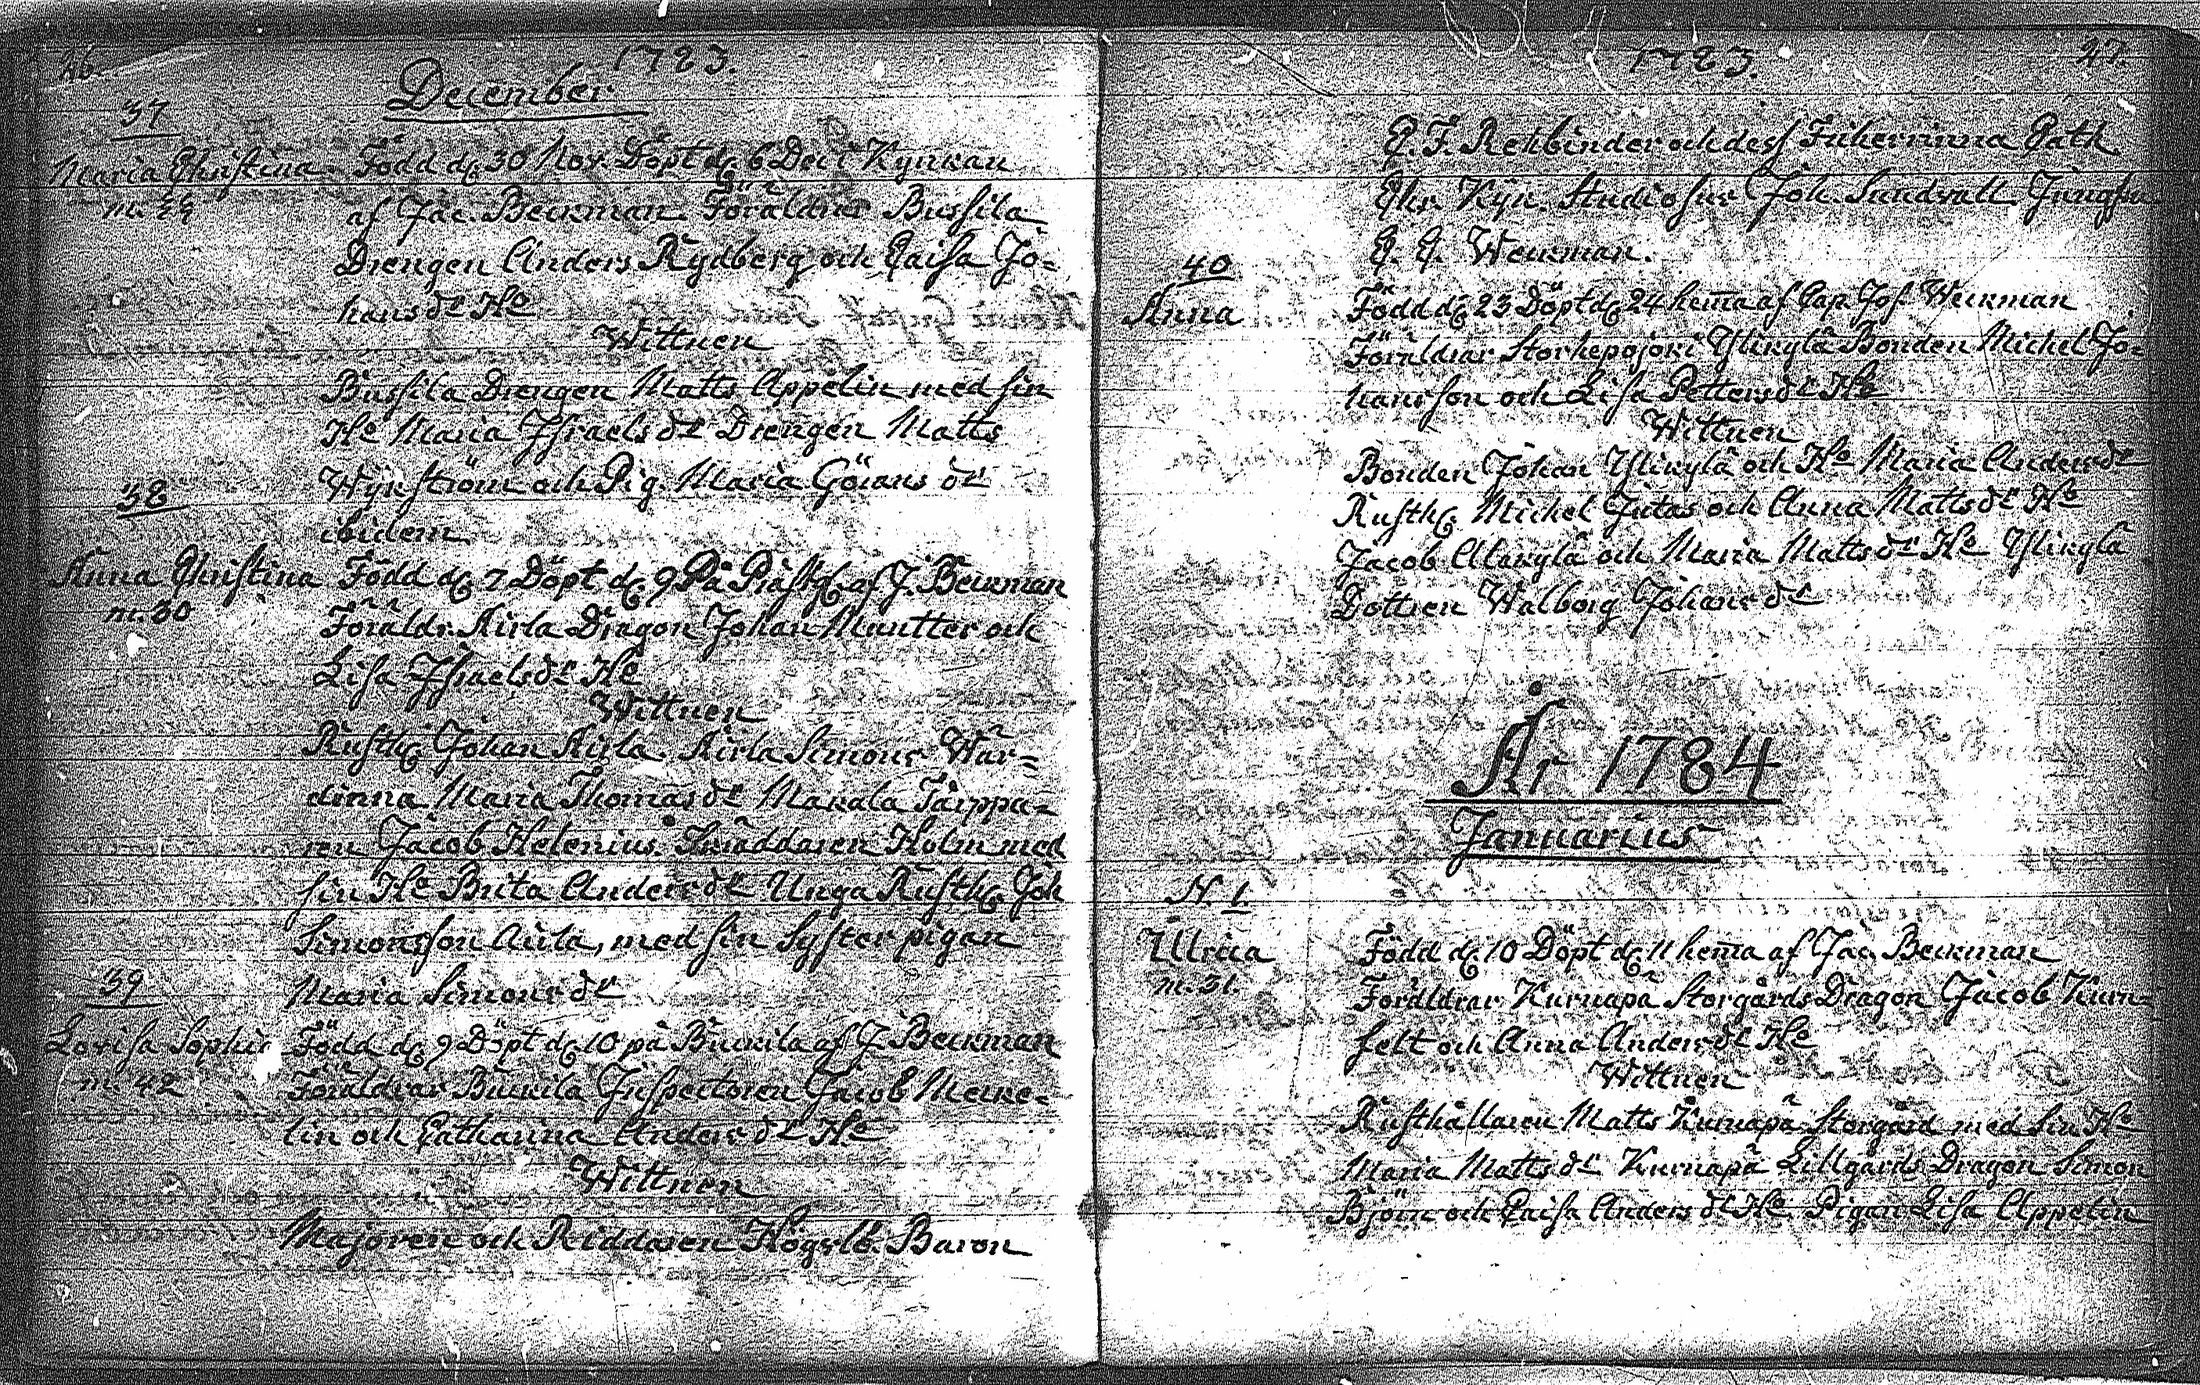 26.
1783.
December
37
Maria Christina Född dɢ 30 Nov. Döpt dɢ 6 Dec i Kyrckan
m. 22 af Jac. Beckman Föräldrar Bussila
Drengen Anders Rydberg och Caisa Jo=
hansdr He
Wittnen
Bussila Drengen Matts Appelin med sin
He Maria Israelsdr Drengen Matts
Wynström och Pig. Maria Görans dr
38
ibidem
Anna Christina Född dɢ 7 Döpt dɢ 9 På af J. Beckman
m. 30 Föräldr. Kirla Dragon Johan Muntter och
Lisa Israelsdr He
Wittnen
Rusth. Johan Kirla. Kirla Simons Wär=
dinna Maria Thomasdr Makala Tårppa=
ren Jacob Helenius. Skräddaren Holm med
sin He Brita Andersdr Unga Rusth. Joh
Simonsson med sin Syster pigan
39
Maria Simonsdr
Lovisa Sophia Född dɢ 9 Döpt dɢ 10 på Buckila af J. Beckman
m. 42 Föräldrar Buckila Inspectoren Jacob Merke=
lin och Catharina Andersdr He
Wittnen
Majoren och Riddaren Högvlb. Baron
1783.
27.
C. F. Rehbinder och dess Friherrinna Cath.
Chr. Kyn. Studiosus Joh. Sundvall Jungfru
C. C. Weckman.
40
Anna Född dɢ 23 Döpt dɢ 24 hema af Cap. Jos. Weckman
Föräldrar Storhepojoki Ylikylä Bonden Michel Jo=
hansson och Lisa Pettersdr He
Wittnen
Bonden Johan Ylikylä och He Maria Andersdr
Rusth. Michel Jutas och Anna Mattsdr He
Jacob Alakylä och Maria Mattsdr He Ylikylä
Dottren Walborg Johansdr
År 1784
Januarius
N. 1.
Ulrica Född dɢ 10 Döpt dɢ 11 hema af Jac. Beckman
m. 31. Föräldrar Kurnapä Storgårds Dragon Jacob Kurn=
felt och Anna Andersdr He
Wittnen
Rusthållaren Matts Kurnapä Storgård med sin He
Maria Mattsdr Kurnapä Lillgårds Dragon Simon
Björn och Caisa Andersdr He. Pigan Lisa Appelin